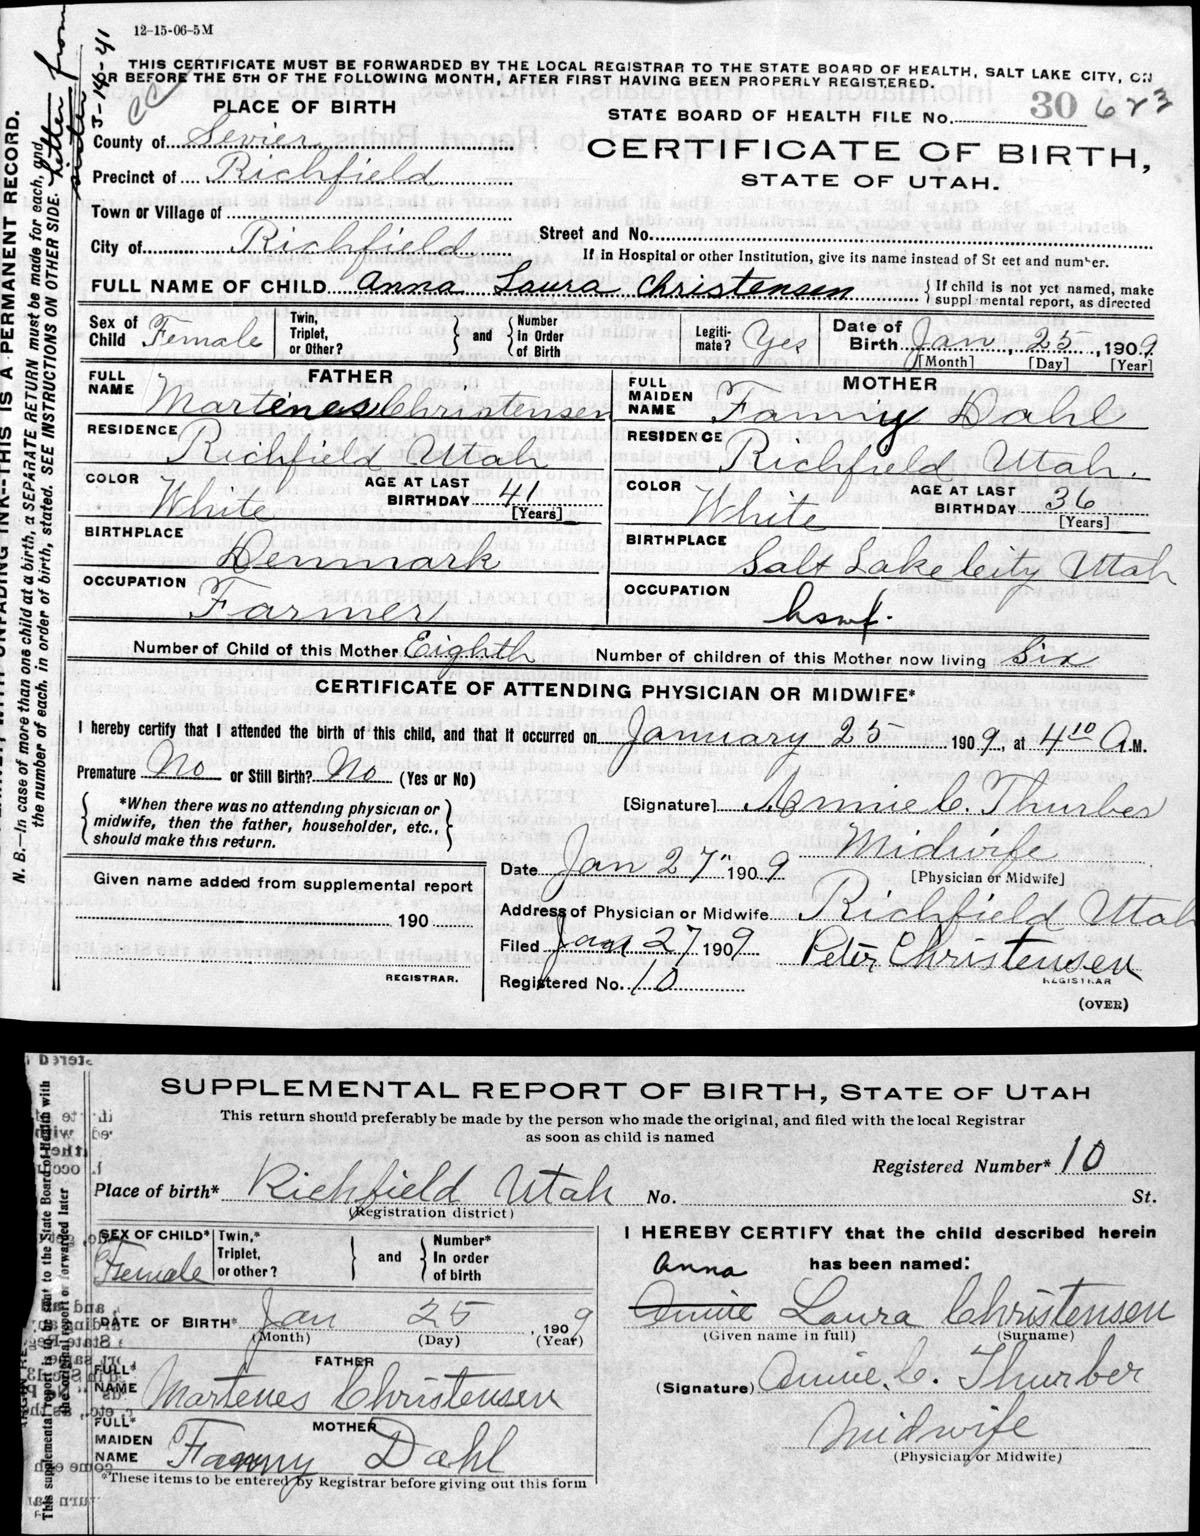 12-15-06-5M
THIS CERTIFICATE MUST BE FORWARDED BY THE LOCAL REGISTRAR TO THE STATE BOARD OF HEALTH, SALT LAKE CITY, ON
OR BEFORE THE 5TH OF THE FOLLOWING MONTH, AFTER FIRST HAVING BEEN PROPERLY REGISTERED.
PLACE OF BIRTH
STATE BOARD OF HEALTH FILE No. 30 623
County of Sevier
CERTIFICATE OF BIRTH,
STATE OF UTAH.
Precinct of Richfield
Town or Village of
City of Richfield
Street and No.
If in Hospital or other Institution, give its name instead of St eet and number.
FULL NAME OF CHILD Anna Laura Christensen { If child is not yet named, make
suppl mental report, as directed
Sex of Child Female
Twin, Triplet, or Other? } and { Number In Order of Birth
Legiti-mate? Yes
Date of Birth Jan, 25, 1909
[Month] [Day] [Year]
FATHER
FULL NAME Martenes Christensen
RESIDENCE Richfield Utah
COLOR White AGE AT LAST BIRTHDAY 41
[Years]
BIRTHPLACE Denmark
OCCUPATION Farmer
MOTHER
FULL MAIDEN NAME Fanny Dahl
RESIDENCE Richfield Utah.
COLOR White AGE AT LAST BIRTHDAY 36
[Years]
BIRTHPLACE Salt Lake City Utah
OCCUPATION hswf.
Number of Child of this Mother Eighth Number of children of this Mother now living Six
CERTIFICATE OF ATTENDING PHYSICIAN OR MIDWIFE*
I hereby certify that I attended the birth of this child, and that it occurred on January 25 1909, at 4 10 A.M.
Premature No or Still Birth? No (Yes or No)
{ *When there was no attending physician or
midwife, then the father, householder, etc.,
should make this return. }
[Signature] Annie C. Thurber
Midwife
[Physician or Midwife]
Date Jan 27" 1909
Given name added from supplemental report
190
REGISTRAR.
Address of Physician or Midwife Richfield Utah
Filed Jan 27 1909 Peter Christensen
REGISTRAR
Registered No. 10
(OVER)
N. B.—In case of more than one child at a birth, a SEPARATE RETURN must be made for each, and
the number of each, in order of birth, stated. SEE INSTRUCTIONS ON OTHER SIDE.
INK--THIS IS A PERMANENT RECORD.
letter from
3-14-41
SUPPLEMENTAL REPORT OF BIRTH, STATE OF UTAH
This return should preferably be made by the person who made the original, and filed with the local Registrar
as soon as child is named
Registered Number* 10
Place of birth* Richfield Utah No. St.
(Registration district)
SEX OF CHILD* Female
Twin,* Triplet, or other? } and { Number* In order of birth
DATE OF BIRTH* Jan 25, 1909
(Month) (Day) (Year)
FATHER
FULL* NAME Martenes Christensen
MOTHER
FULL* MAIDEN NAME Fanny Dahl
*These items to be entered by Registrar before giving out this form
I HEREBY CERTIFY that the child described herein
Anna has been named:
Annie Laura Christensen
(Given name in full) (Surname)
(Signature) Annie. C. Thurber
Midwife
(Physician or Midwife)
This supplemental report is to be sent to the State Board of Health with
the original report or forwarded later